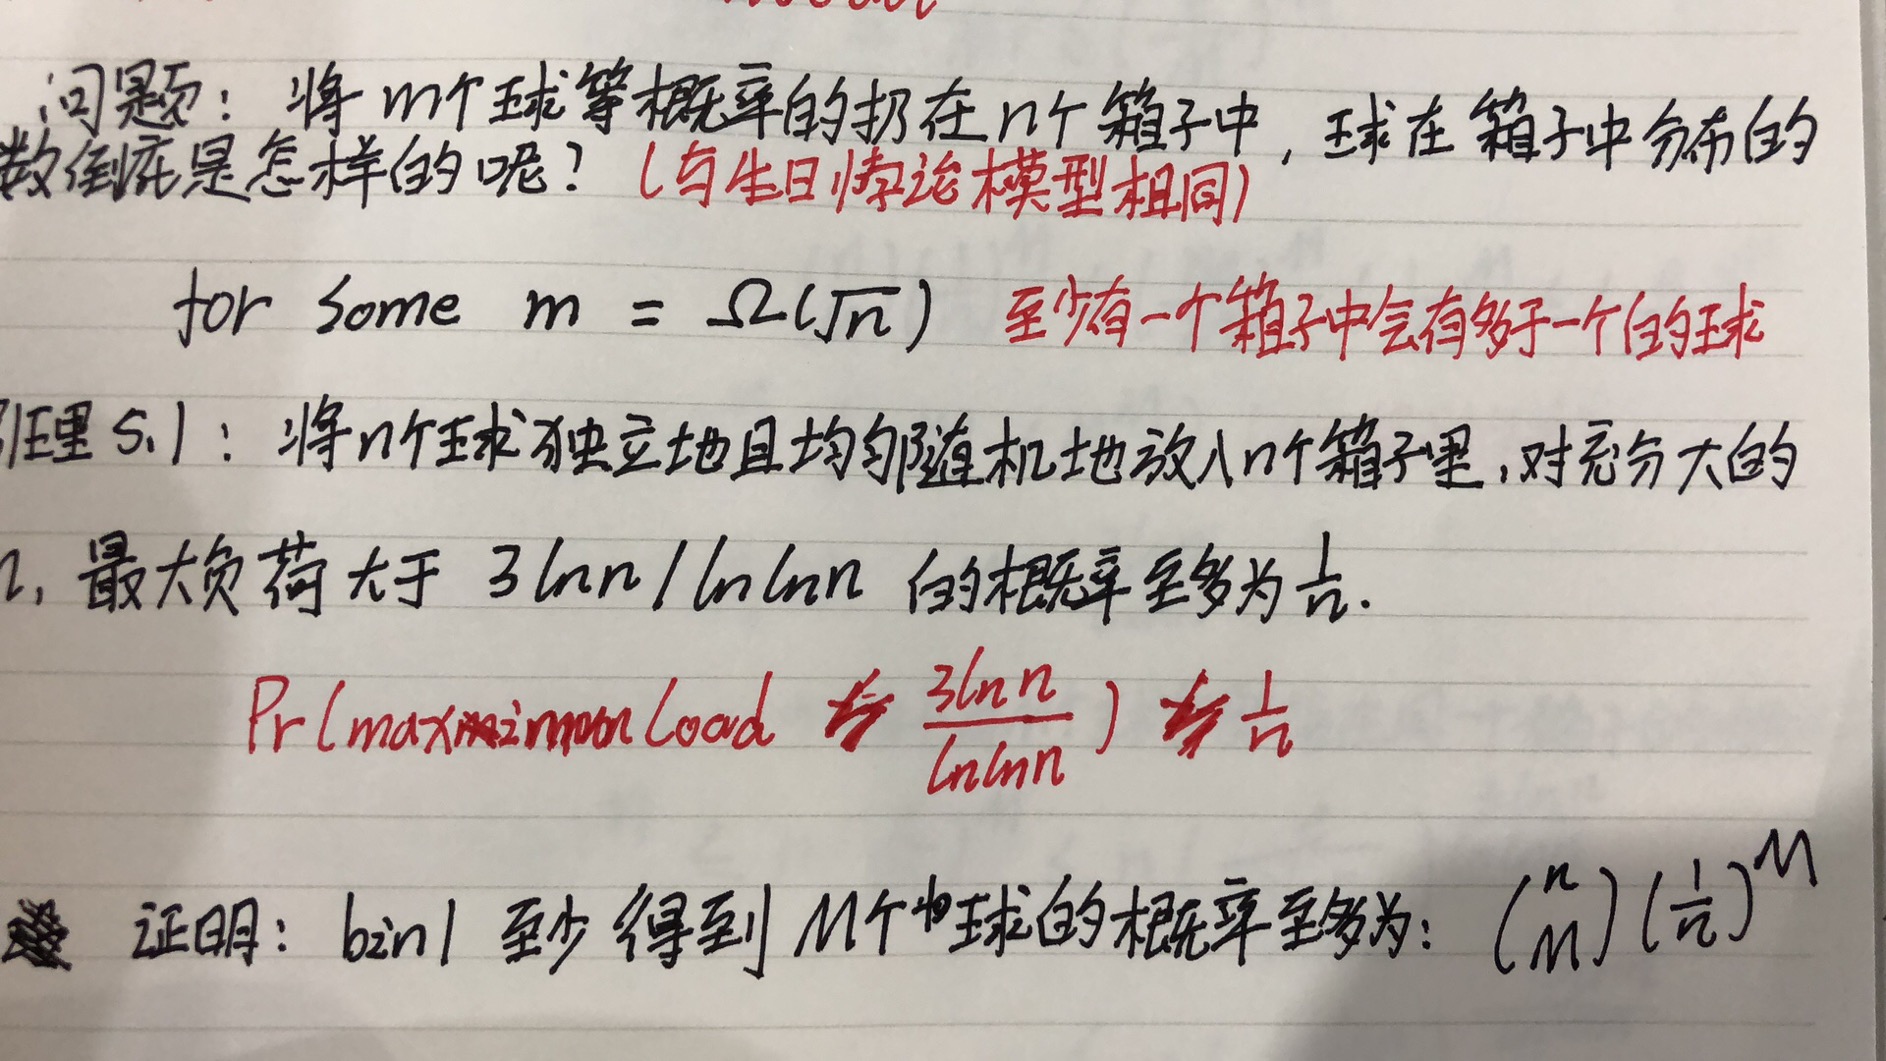 问题：将m个球等概率的扔在n个箱子中，球在箱子中分布的
数到底是怎样的呢？（与生日悖论模型相同）
for some m = Ω(√n) 至少有一个箱子中会有多于一个的球
引理5.1：将n个球独立地且均匀随机地放入n个箱子里，对充分大的
n，最大负荷大于 3lnn/lnlnn 的概率至多为 1/n.
Pr(maximum load 3lnn/lnlnn) 1/n
证明：bin1 至少得到M个球的概率至多为：(n M)(1/n)^M